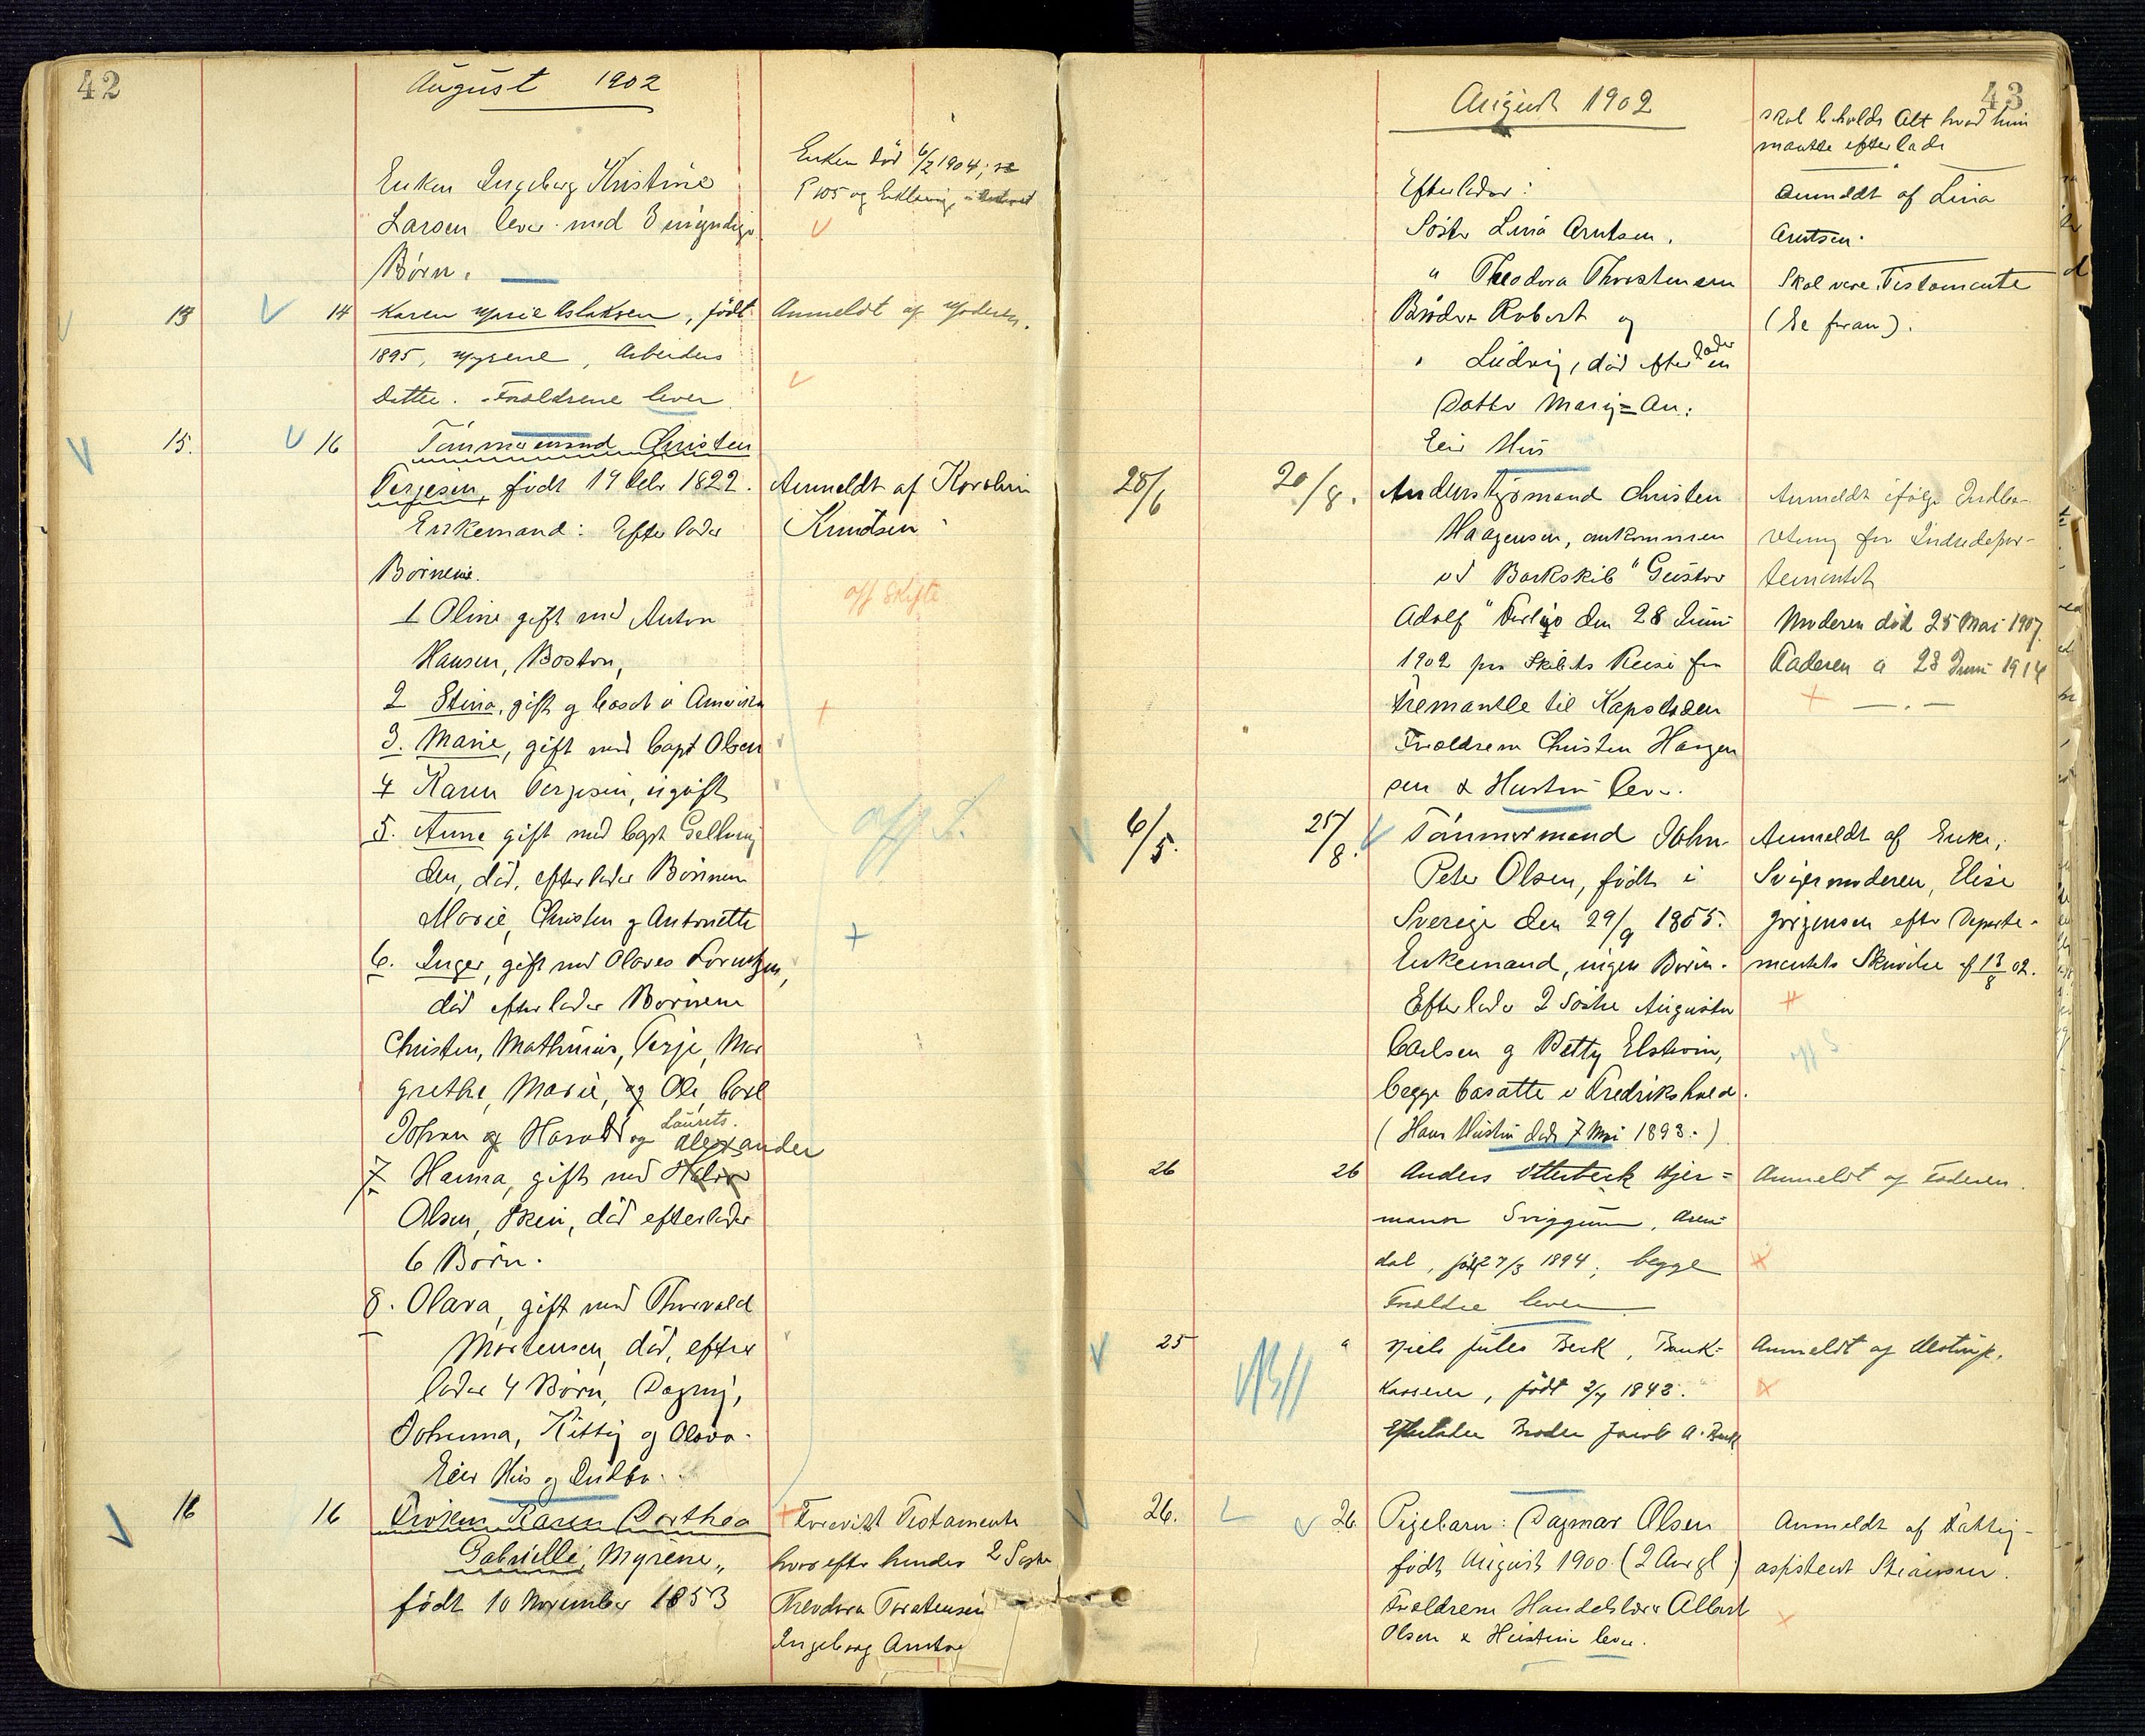 42
August 1902
Enken Ingeborg Kristine
Larsen lever med 3 umyndige
Børn.
Enken død 6/2 1904; se
P 105 og Erklæring
13 14 Karen Marie Aslaksen, født
1895, Myrene, Arbeiders
Datter. Forældrene lever
Anmeldt af Moderen.
15. 16 Tømmermand Christen
Terjesen, født 19 Febr 1822.
Enkemand: Efterlader
Børnene.
Anmeldt af Karoline
Knudsen
off Skifte
1 Oline gift med Anton
Hansen, Boston,
2 Stina, gift g bosat i Amerika
3. Marie, gift med Capt Olsen
4 Karen Terjesen, ugift
5. Anne gift med Capt Gellung
den, død, efterlader Børnene
Marie, Christen g Antonette
6. Inger, gift med Olaves Lorentzen,
død efterlader Børnene
Christen, Mathinius, Terje, Mar
grethe, Marie, og Ole, Carl
Johan og Harald og Laurets. Alexander
7. Hanna, gift med
Olsen, Skien, død efterlader
6 Børn.
8. Olava, gift med Thorvald
Mortensen, død, efter
lader 4 Børn, Dagny,
Johanna, Kitty og Olava.
Eier Hus og Indbo.
off S.
16 16 Frøken Karen Dorthea
Gabrielle, Myrene,
født 10 November 1853
Forevist Testamente
hvorefter hendes 2 Søstre
Theodora Torstensen
Ingeborg Arntsen
43
August 1902
skal beholde Alt hvad hun
maatte efterlade
Efterlader:
Søster Lina Arntsen.
" Theodora Thorstensen
Broder Robert og
" Ludvig, død efterlader en
Datter Mary-An:
Eier Hus
Anmeldt af Lina
Arntsen.
Skal være Testamente
(Se foran).
28/6 20/8. Anden Styrmand Christen
Haagensen, omkommen
vd Barkskib "Gustav
Adolf" Forlis den 28 Juni
1902 paa Skibets Reise fra
Fremantle til Kapstaden
Forældrene Christen Haagen
sen & Hustru lev.
Anmeldt ifølge Indbe-
retning fra Indredepar-
tementet
Moderen død 25 Mai 1907
Faderen d 28 Juni 1914
6/5. 25/8. Tømmermand John
Peter Olsen, født i
Sverige den 29/9 1855.
Enkemand, ingen Børn.
Efterlader 2 Søstre Augusta
Carlsen g Betty Elstrøm,
begge bosatte i Fredrikshald.
(Hans Hustru døde 7 Mai 1898.)
Anmeldt af Enke,
Svigermoderen, Elise
Jørgensen efter Departe-
mentets Skrivelse af 13/8 02.
off S
26 26 Anders Otterbeck Hjer=
mann Sviggum, Aren=
dal, født 27/3 1894; begge
Forældre lever
Anmeldt af Faderen.
25 " Niels Julius Beck, Bank=
kasserer, født 2/7 1843.
Efterlader Broder Jacob A. Beck
Anmeldt af
26. 26 Pigebarn: Dagmar Olsen
født August 1900 (2 Aar gl)
Forældrene Handelsbr Albert
Olsen & Hustru lever.
Anmeldt af Fattig-
assistent